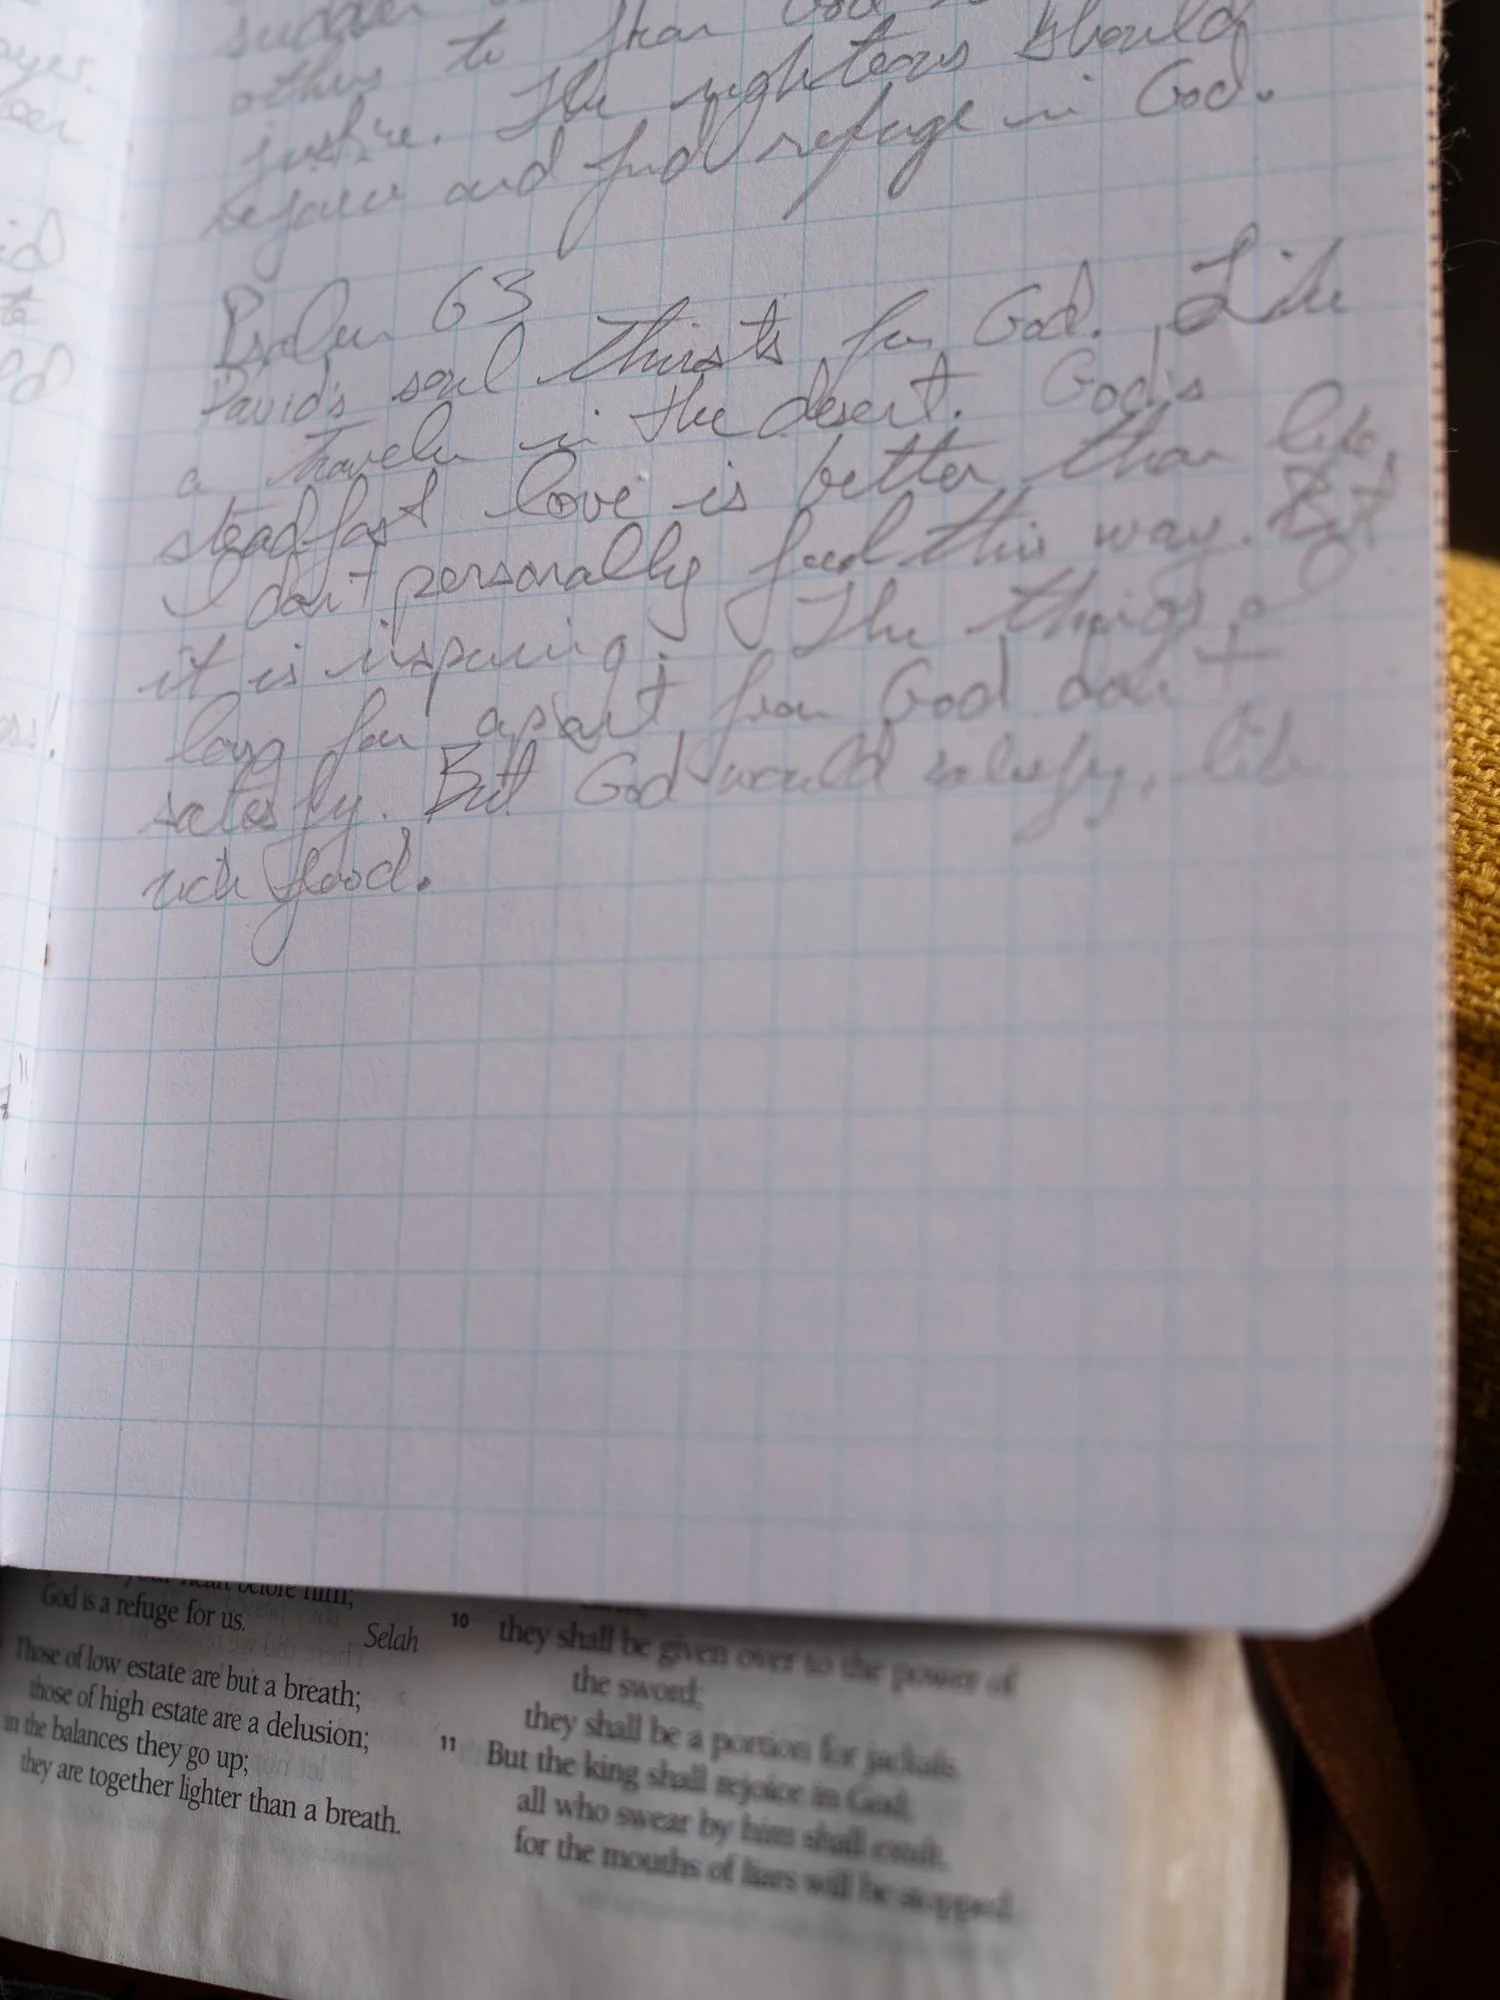 sudden
others to fear God
justice. The righteous should
rejoice and find refuge in God.
Psalm 63
David's soul thirsts for God. Like
a traveler in the desert. God's
steadfast love is better than life.
I don't personally feel this way. But
it is inspiring. The things I
long for apart from God don't
satisfy. But God would satisfy, like
rich food.
God is a refuge for us.
Selah
Those of low estate are but a breath;
those of high estate are a delusion;
in the balances they go up;
they are together lighter than a breath.
10 they shall be given over to the power of
the sword;
they shall be a portion for jackals.
11 But the king shall rejoice in God;
all who swear by him shall exult,
for the mouths of liars will be stopped.